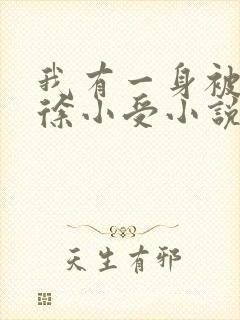 我有一身被
徐小受小說
天生有邪